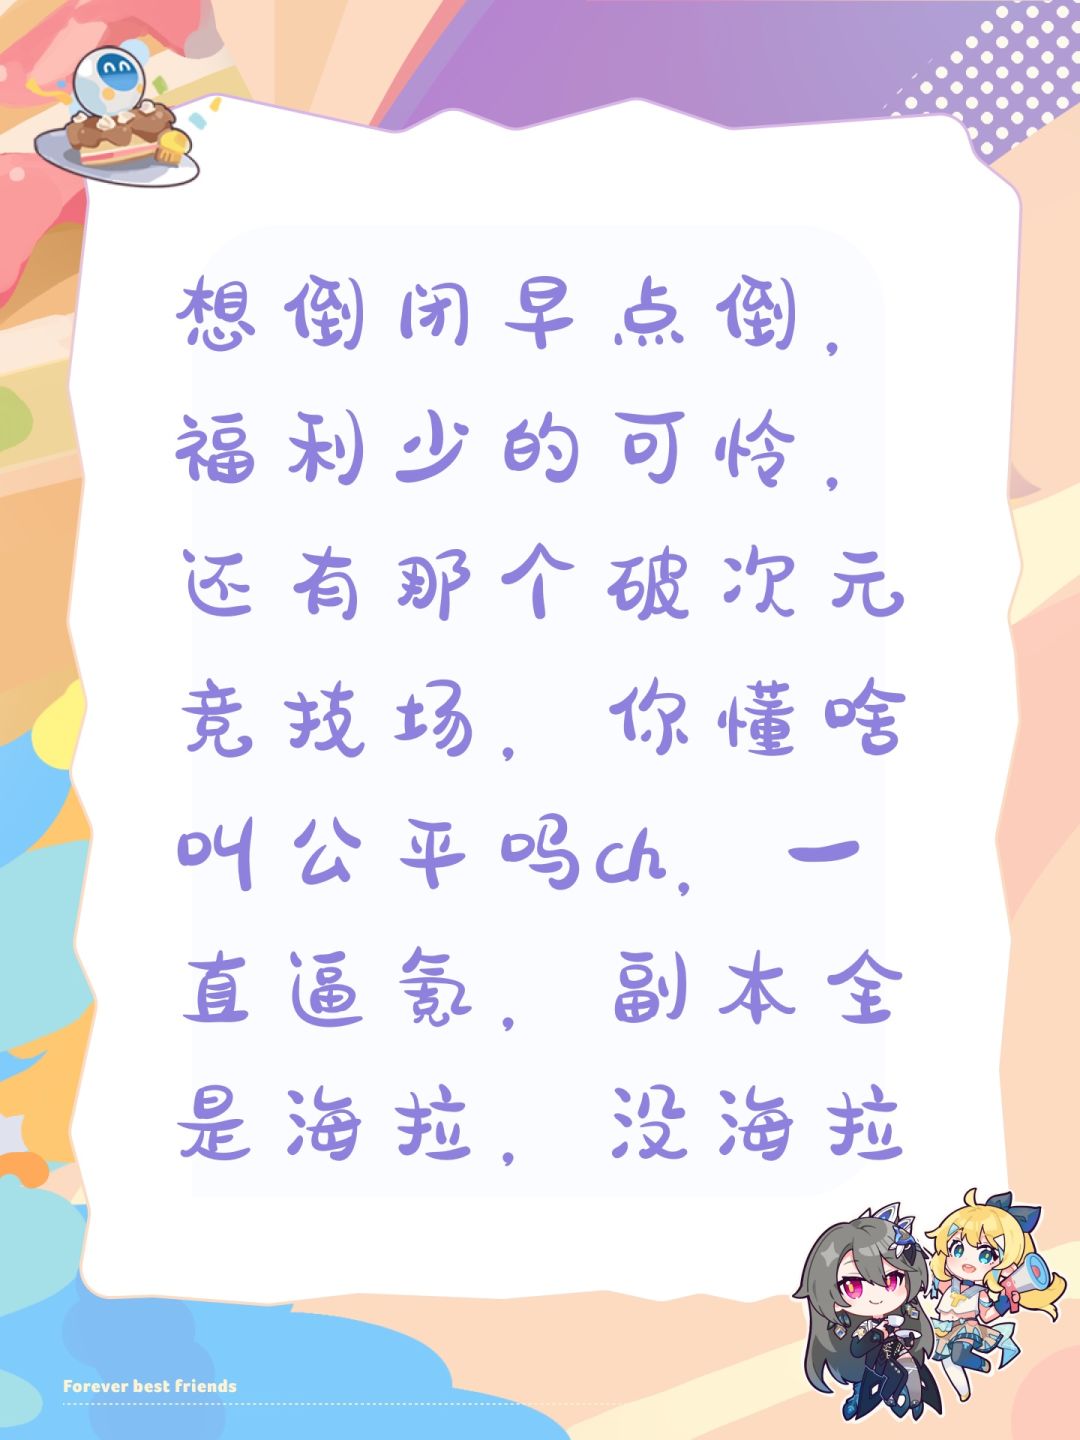 想倒闭早点倒，
福利少的可怜，
还有那个破次元
竞技场，你懂啥
叫公平吗ch，一
直逼氪，副本全
是海拉，没海拉
Forever best friends